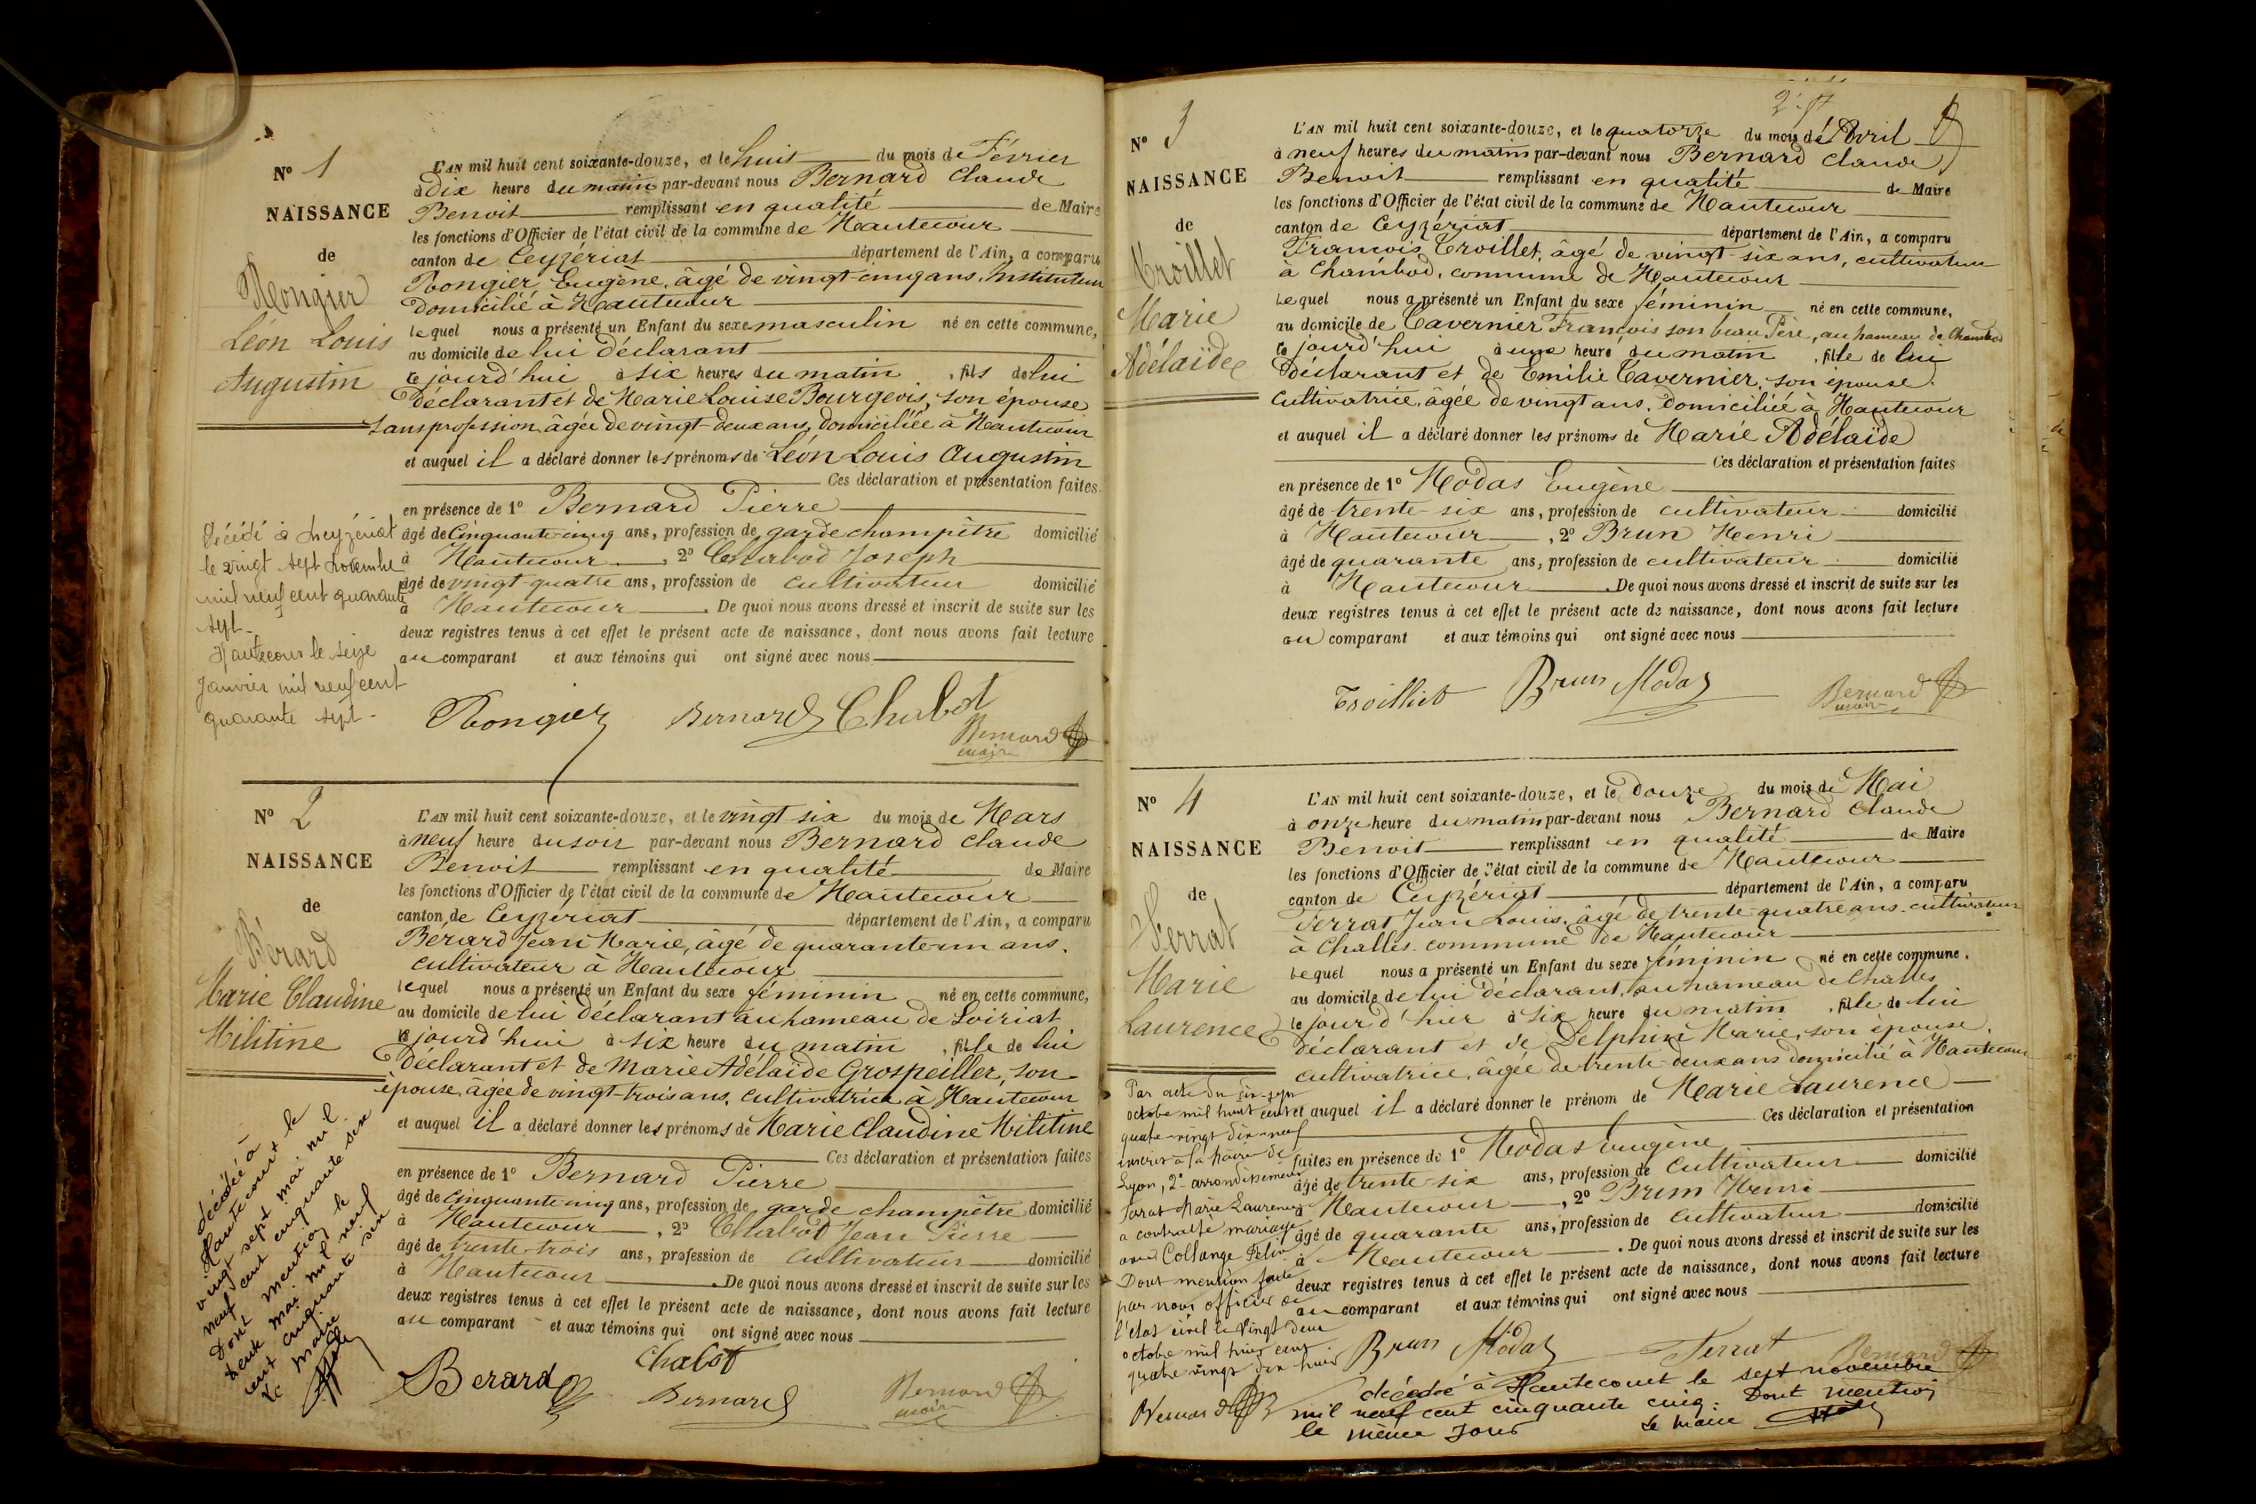 N° 1
NAISSANCE
de
Rongier
Léon Louis
Augustin
L'AN mil huit cent soixante-douze, et le huit du mois de Février
à dix heure du matin par-devant nous Bernard Claude
Benoit remplissant en qualité de Maire
les fonctions d'Officier de l'état civil de la commune de Hautecour
canton de Ceyzériat département de l'Ain, a comparu
Rongier Eugène, âgé de vingt-cinq ans, Instituteur
domicilié à Hautecour
lequel nous a présenté un Enfant du sexe masculin né en cette commune,
au domicile de lui déclarant
ce jourd'hui à six heures du matin, fils de lui
déclarant et de Marie Louise Bourgeois, son épouse
sans profession, âgée de vingt-deux ans, domiciliée à Hautecour
et auquel il a déclaré donner les prénoms de Léon Louis Augustin
Ces déclaration et présentation faites
en présence de 1° Bernard Pierre
âgé de Cinquante-cinq ans, profession de garde champêtre domicilié
à Hautecour, 2° Chabod Joseph
âgé de vingt-quatre ans, profession de cultivateur domicilié
à Hautecour. De quoi nous avons dressé et inscrit de suite sur les
deux registres tenus à cet effet le présent acte de naissance, dont nous avons fait lecture
au comparant et aux témoins qui ont signé avec nous
Décédé à Ceyzériat
le vingt sept novembre
mil neuf cent quarante
sept.
Hautecour le seize
Janvier mil neuf cent
quarante sept.
Rongier Bernard Chabot
Bernard
maire
N° 2
NAISSANCE
de
Bérard
Marie Claudine
Militine
L'AN mil huit cent soixante-douze, et le vingt-six du mois de Mars
à neuf heure du soir par-devant nous Bernard Claude
Benoit remplissant en qualité de Maire
les fonctions d'Officier de l'état civil de la commune de Hautecour
canton de Ceyzeriat département de l'Ain, a comparu
Bérard Jean Marie, âgé de quarante-un ans,
cultivateur à Hautecour
lequel nous a présenté un Enfant du sexe féminin né en cette commune,
au domicile de lui déclarant au hameau de Soiriat
ce jourd'hui à six heure du matin, fille de lui
déclarant et de Marie Adélaïde Grospeiller, son
épouse, âgée de vingt-trois ans, cultivatrice à Hautecour
et auquel il a déclaré donner les prénoms de Marie Claudine Militine
Ces déclaration et présentation faites
en présence de 1° Bernard Pierre
âgé de cinquante cinq ans, profession de garde champêtre domicilié
à Hautecour, 2° Chabod Jean Pierre
âgé de trente-trois ans, profession de cultivateur domicilié
à Hautecour. De quoi nous avons dressé et inscrit de suite sur les
deux registres tenus à cet effet le présent acte de naissance, dont nous avons fait lecture
au comparant et aux témoins qui ont signé avec nous
décédée à
Hautecourt le
vingt sept mai mil
neuf cent cinquante six
Dont mention le
mai mil neuf
cent cinquante six
Le Maire
Berard Chabot
Bernard Bernard
maire
N° 3
NAISSANCE
de
Troillet
Marie
Adélaïde
L'AN mil huit cent soixante-douze, et le quatorze du mois de Avril
à neuf heures du matin par-devant nous Bernard Claude
Benoit remplissant en qualité de Maire
les fonctions d'Officier de l'état civil de la commune de Hautecour
canton de Ceyzériat département de l'Ain, a comparu
François Troillet, âgé de vingt-six ans, cultivateur
à Chambod, commune de Hautecour
lequel nous a présenté un Enfant du sexe féminin né en cette commune,
au domicile de Tavernier François son beau Père, au hameau de Chambod
ce jourd'hui à une heure du matin, fille de lui
déclarant et de Emilie Tavernier, son épouse,
cultivatrice, âgée de vingt ans, domiciliée à Hautecour
et auquel il a déclaré donner les prénoms de Marie Adélaïde
Ces déclaration et présentation faites
en présence de 1° Modas Eugène
âgé de trente-six ans, profession de cultivateur domicilié
à Hautecour, 2° Brun Henri
âgé de quarante ans, profession de cultivateur domicilié
à Hautecour. De quoi nous avons dressé et inscrit de suite sur les
deux registres tenus à cet effet le présent acte de naissance, dont nous avons fait lecture
au comparant et aux témoins qui ont signé avec nous
Troilliet Brun Modas Bernard
maire
N° 4
NAISSANCE
de
Ferrat
Marie
Laurence
L'AN mil huit cent soixante-douze, et le Douze du mois de Mai
à onze heure du matin par-devant nous Bernard Claude
Benoit remplissant en qualité de Maire
les fonctions d'Officier de l'état civil de la commune de Hautecour
canton de Ceyzériat département de l'Ain, a comparu
Ferrat Jean Louis, âgé de trente-quatre ans, cultivateur
à Challes commune de Hautecour
lequel nous a présenté un Enfant du sexe féminin né en cette commune,
au domicile de lui déclarant, au hameau de Challes
le jour d'hier à six heure du matin, fille de lui
déclarant et de Delphine Marie, son épouse,
cultivatrice, âgée de trente-deux ans domicilié à Hautecour
et auquel il a déclaré donner le prénom de Marie Laurence
Ces déclaration et présentation
faites en présence de 1° Modas Eugène
âgé de trente-six ans, profession de cultivateur domicilié
à Hautecour, 2° Brun Henri
âgé de quarante ans, profession de cultivateur domicilié
à Hautecour. De quoi nous avons dressé et inscrit de suite sur les
deux registres tenus à cet effet le présent acte de naissance, dont nous avons fait lecture
au comparant et aux témoins qui ont signé avec nous
Par acte du dix-sept
octobre mil huit cent
quatre-vingt dix-neuf
inscrit à la Mairie de
Lyon, 2e arrondissement
Ferrat Marie Laurence
a contracté mariage
avec Collange Félix
Dont mention faite
par nous officier de
l'état civil le vingt deux
octobre mil huit cent
quatre vingt dix huit
Bernard
Brun Modas Ferrat Bernard
décédée à Hautecourt le sept novembre
mil neuf cent cinquante cinq. Dont mention
le même jour Le Maire